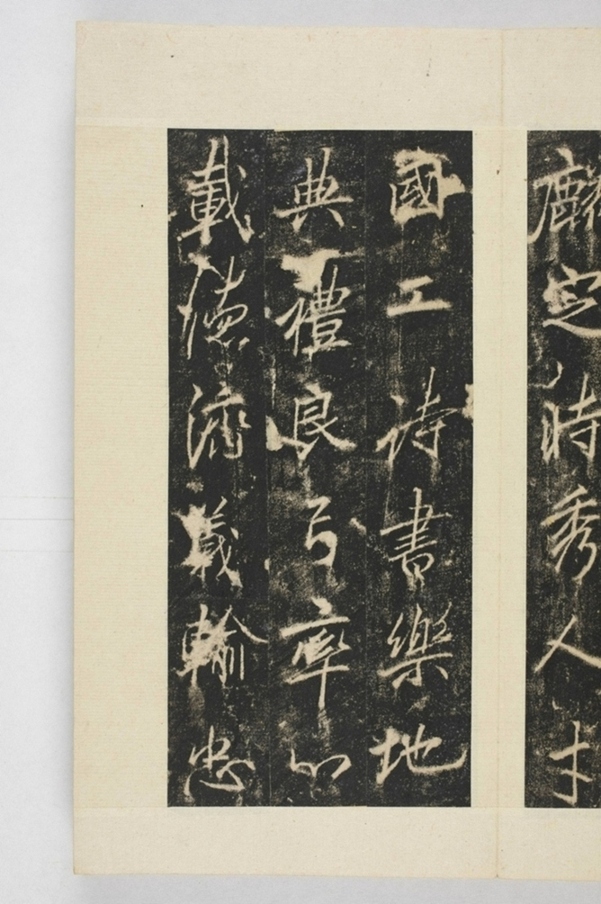 麟定時秀人才
國工詩書樂地
典禮良弓率心
載德濟義輸忠